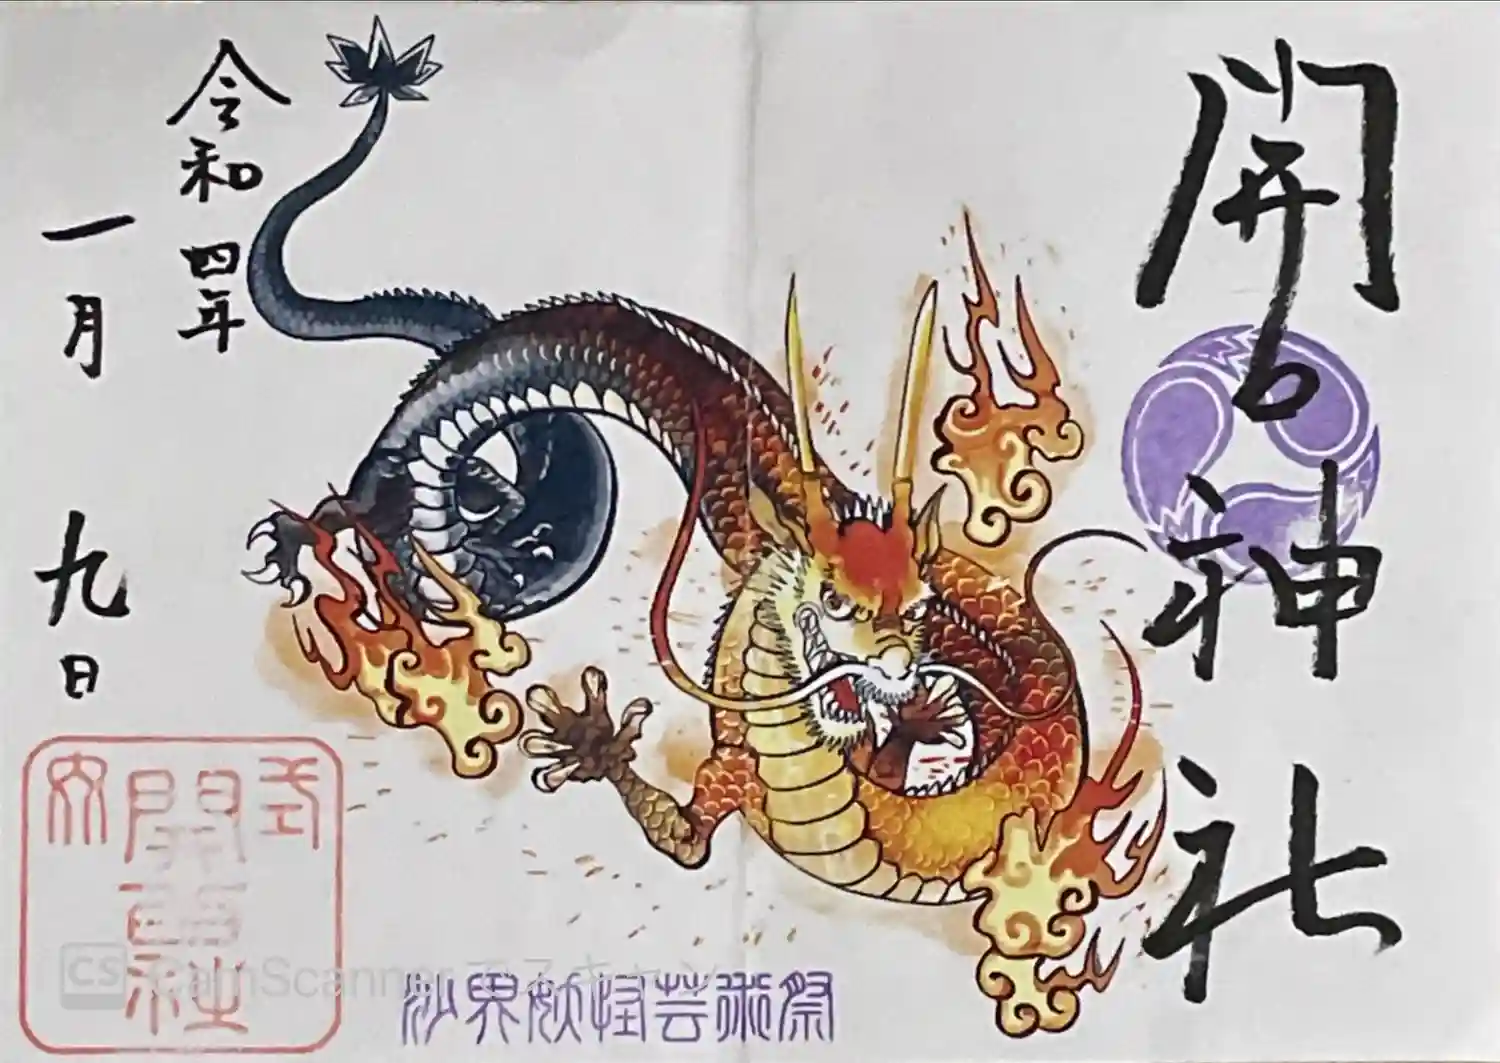 開口神社
令和四年
一月九日
沙界妖怪芸術祭
CS CamScanner でスキャン